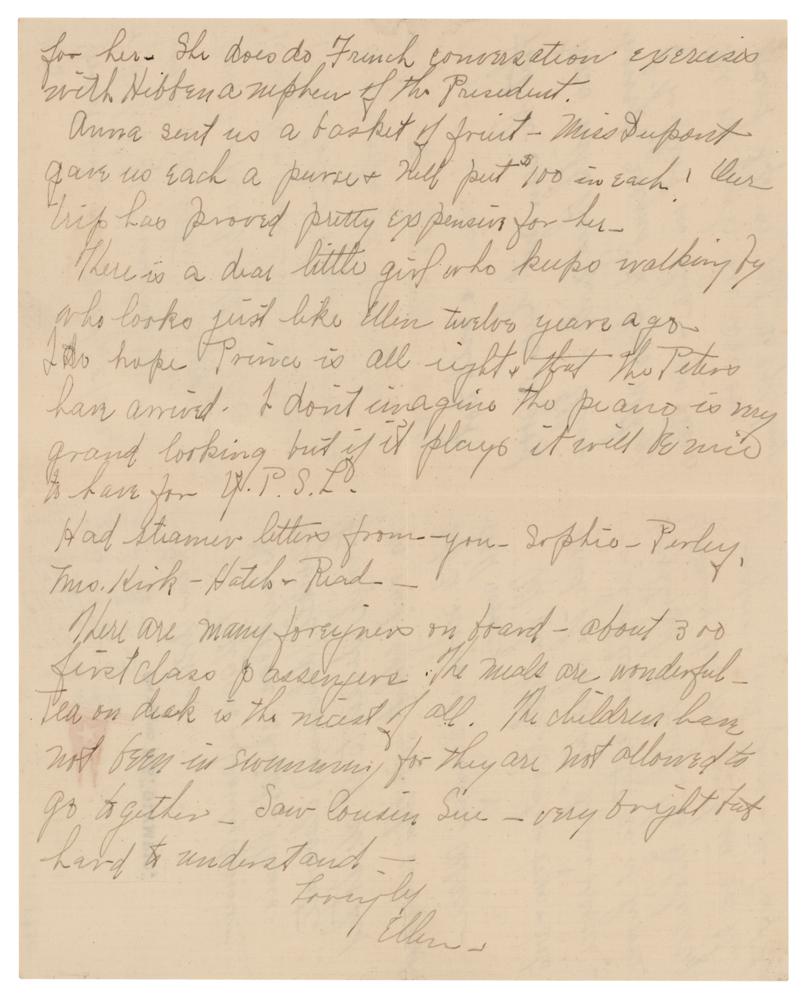 for her - She does do French conversation exercises
with Hibben a nephew of the President.
Anna sent us a basket of fruit - Miss Dupont
gave us each a purse & Nell put $100 in each! Our
trip has proved pretty expensive for her -
There is a dear little girl who keeps walking by
who looks just like Ellen twelve years ago -
I do hope Prince is all right & that the Peters
have arrived. I don't imagine the piano is very
grand looking but if it plays it will be nice
to have for Y.P.S.L.
Had steamer letters from - you - Sophie - Perley,
Mrs. Kirk - Hatch & Read -
There are many foreigners on board - about 300
first class passengers. The meals are wonderful -
Tea on deck is the nicest of all. The children have
not been in swimming for they are not allowed to
go together - Saw Cousin Sue - very bright but
hard to understand -
Lovingly
Ellen -